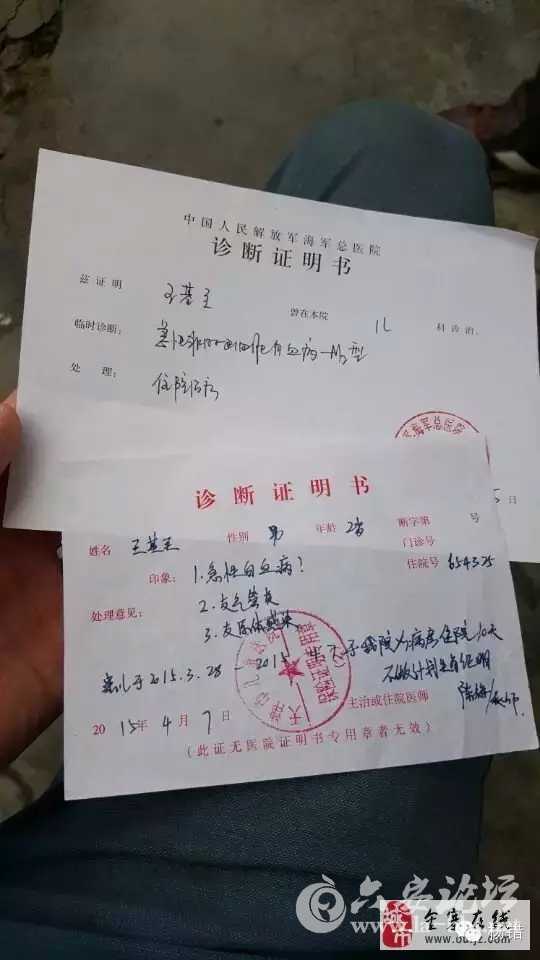 中国人民解放军海军总医院
诊断证明书
兹证明 王基主 曾在本院 儿 科诊治。
临时诊断: 急性非淋巴细胞白血病-M2型
处 理: 住院治疗
海军总医院
日
诊断证明书
姓名 性别 男 年龄 2岁 断字第 号
门诊号
印象: 1.急性白血病? 住院号 654325
处理意见: 2.支气管炎
3.支原体感染
患儿于2015.3.28-2015 于我院 病房住院10天
不做计划生育证明
主治或住院医师 陈
2015年4月7日
(此证无医院证明书专用章者无效)
六安论坛
金寨在线
杨错